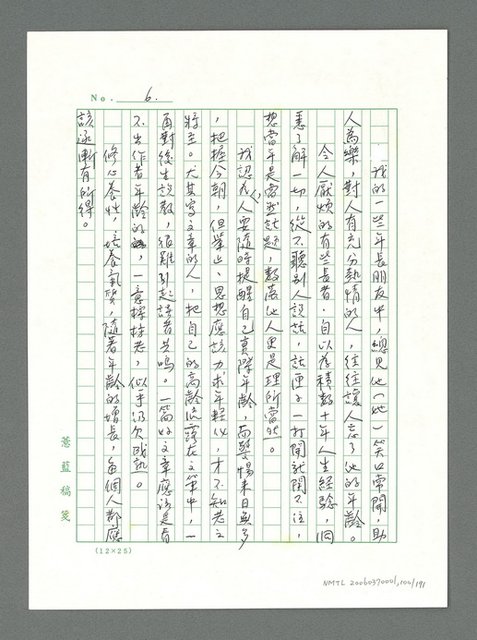 No. 6.
我的一些年長朋友中，總見他（她）笑口常開，助
人為樂，對人有充分熱情的人，往往讓人忘了他的年齡。
令人厭煩的有些長者，自以為積數十年人生經驗，洞
悉了解一切，從不聽別人說話，話匣子一打開就關不住，
想當年是當然話題，數落他人更是理所當然。
我認為人要隨時提醒自己實際年齡，而警惕來日無多
，把握今朝，但舉止、思想應該力求年輕化，才不知老之
將至。尤其寫文章的人，把自己的高齡流露在文筆中，一
再對後生說教，很難引起讀者共鳴。一篇好文章應該是看
不出作者年齡的，一意倚老賣老，似乎仍欠成熟。
修心養性，培養氣質，隨著年齡的增長，每個人都應
該逐漸有所得。
薏藍稿箋
(12×25)
NMTL 20060370001,100/191